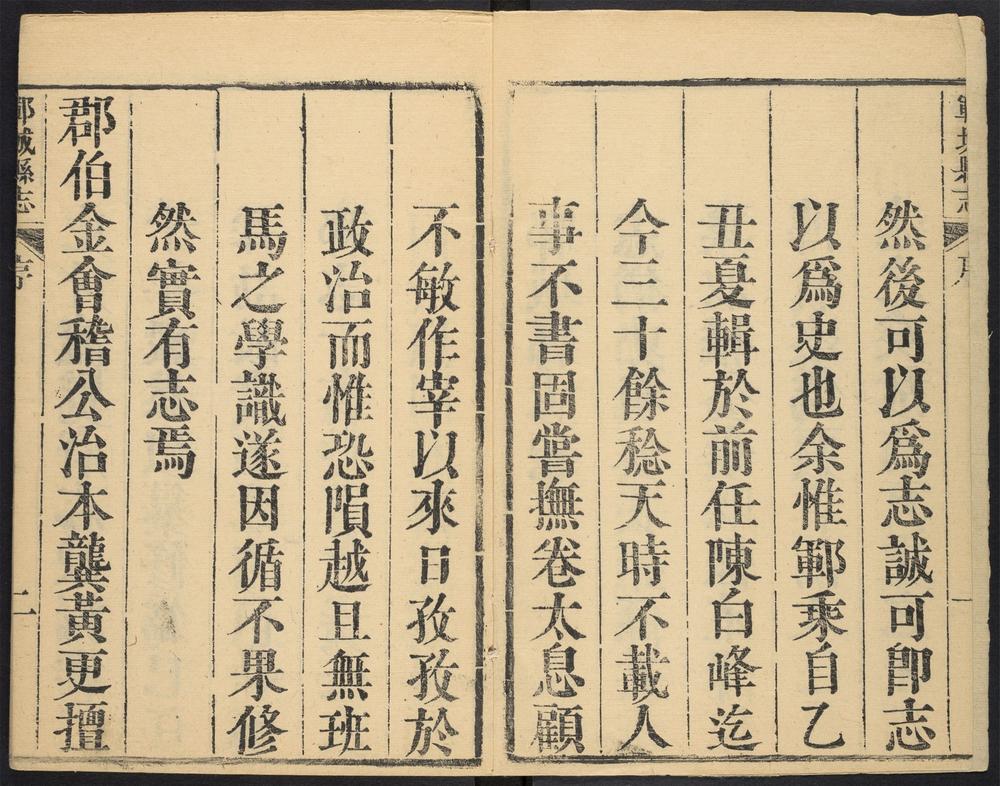 鄆城縣志
序
然後可以爲志誠可卽志
以爲史也余惟鄆乘自乙
丑夏輯於前任陳白峰迄
今三十餘稔天時不載人
事不書固嘗撫卷太息顧
不敏作宰以來日孜孜於
政治而惟恐隕越且無班
馬之學識遂因循不果修
然實有志焉
郡伯金會稽公治本龔黃更擅
鄆城縣志
序
二